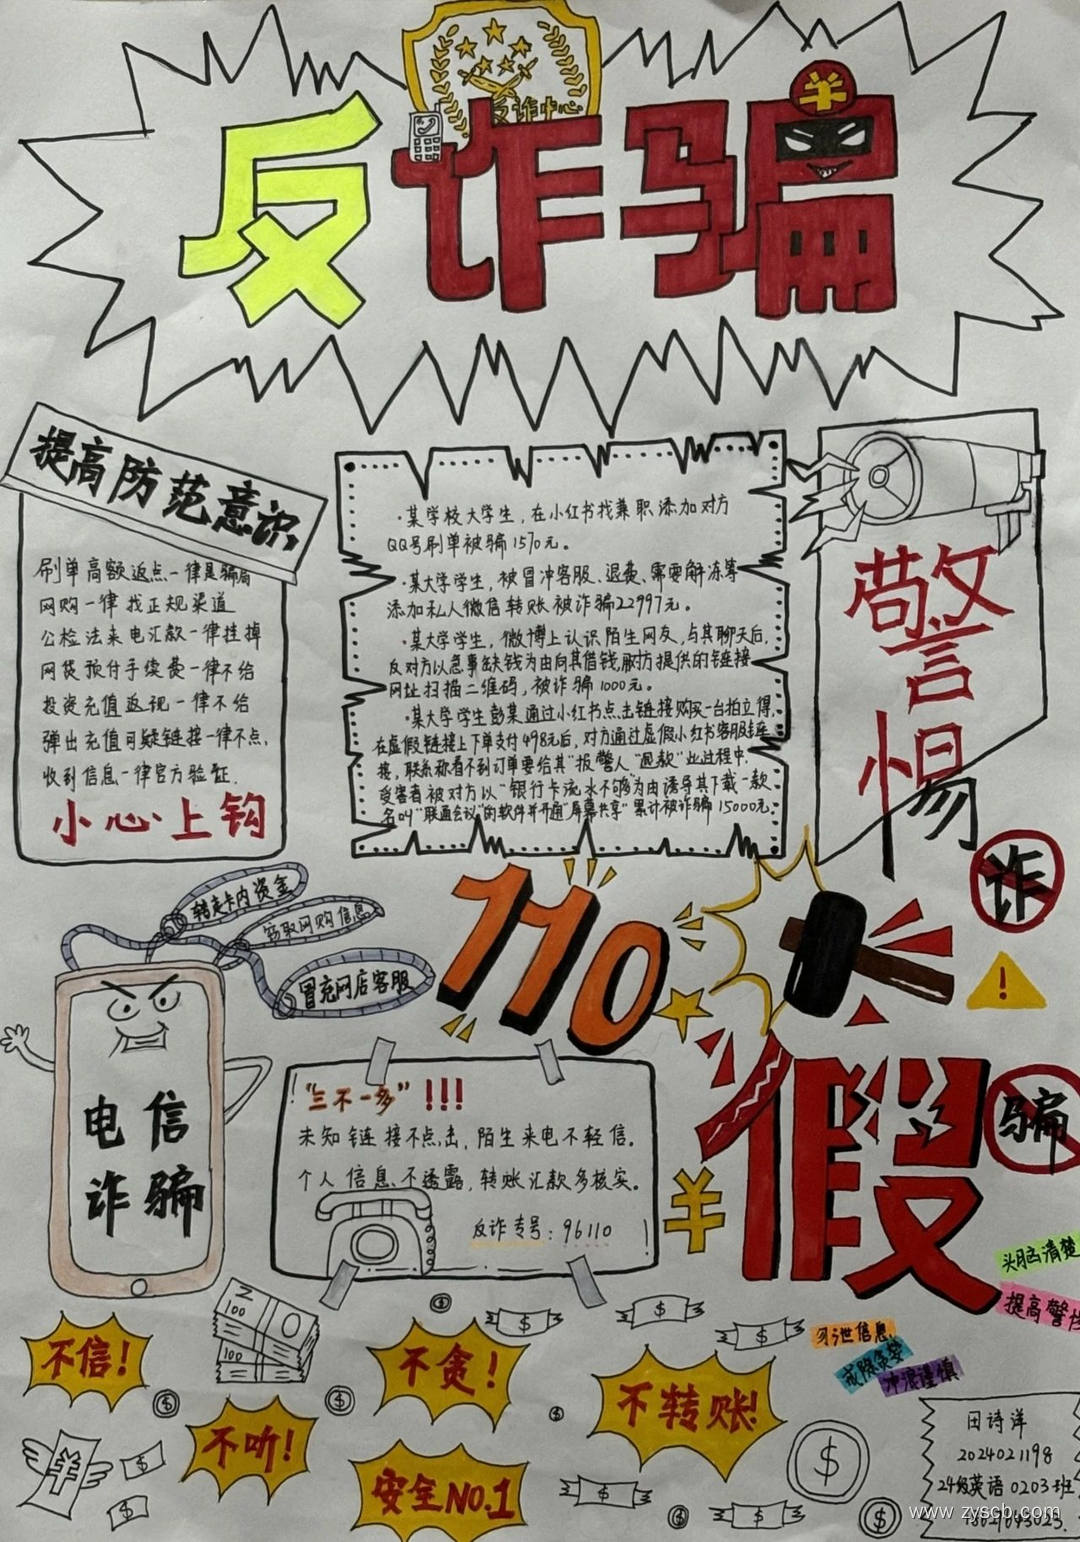 反诈中心
反诈骗
提高防范意识
刷单高额返点一律是骗局
网购一律找正规渠道
公检法来电汇款一律挂掉
网贷预付手续费一律不给
投资充值返现一律不给
弹出充值可疑链接一律不点,
收到信息一律官方验证.
小心上钩
·某学校大学生,在小红书找兼职添加对方
QQ号刷单被骗1570元。
·某大学学生,被冒冲客服、退费、需要解冻等
添加私人微信转账被诈骗22997元。
·某大学学生,微博上认识陌生网友,与其聊天后,
反对方以急事缺钱为由向其借钱,
网址扫描二维码,被诈骗1000元。
·某大学学生彭某通过小红书点击链接购买一台拍立得,
在虚假链接上下单支付498元后,对方通过虚假小红书客服
接,联系称看不到订单要给其"报警人"退款"此过程中.
受害者被对方以"银行卡流水不够"为由诱导其下载一款
名叫"联通会议"的软件并开通"屏幕共享"累计被诈骗15000元.
警
惕
诈
转走卡内资金
窃取网购信息
冒充网店客服
110
电信
诈骗
"三不一多"!!!
未知链接不点击,陌生来电不轻信。
个人信息不透露,转账汇款多核实。
反诈专号:96110
假
骗
¥
头脑清楚
提高警惕
冲浪谨慎
不信!
100
100
不贪!
不转账!
不听!
安全NO.1
田诗洋
2024021198
24级英语0203班
www.zyscb.com